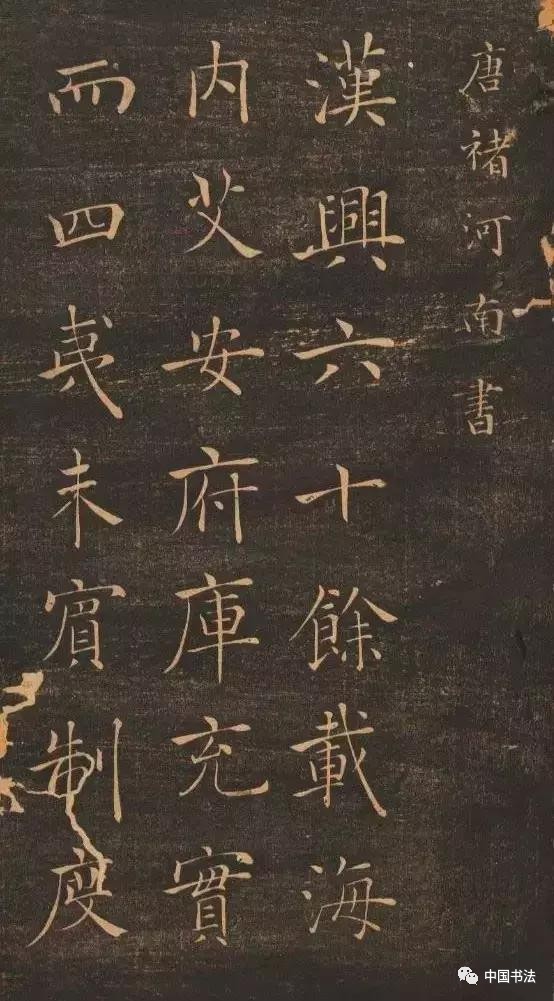 唐褚河南書
漢興六十餘載海
内艾安府庫充實
而四夷未賓制度
中国书法